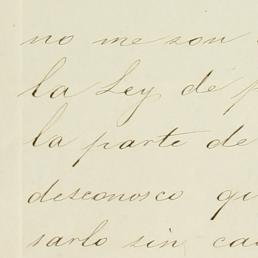 no me son
la Ley de
la parte de
desconosco
sarlo sin